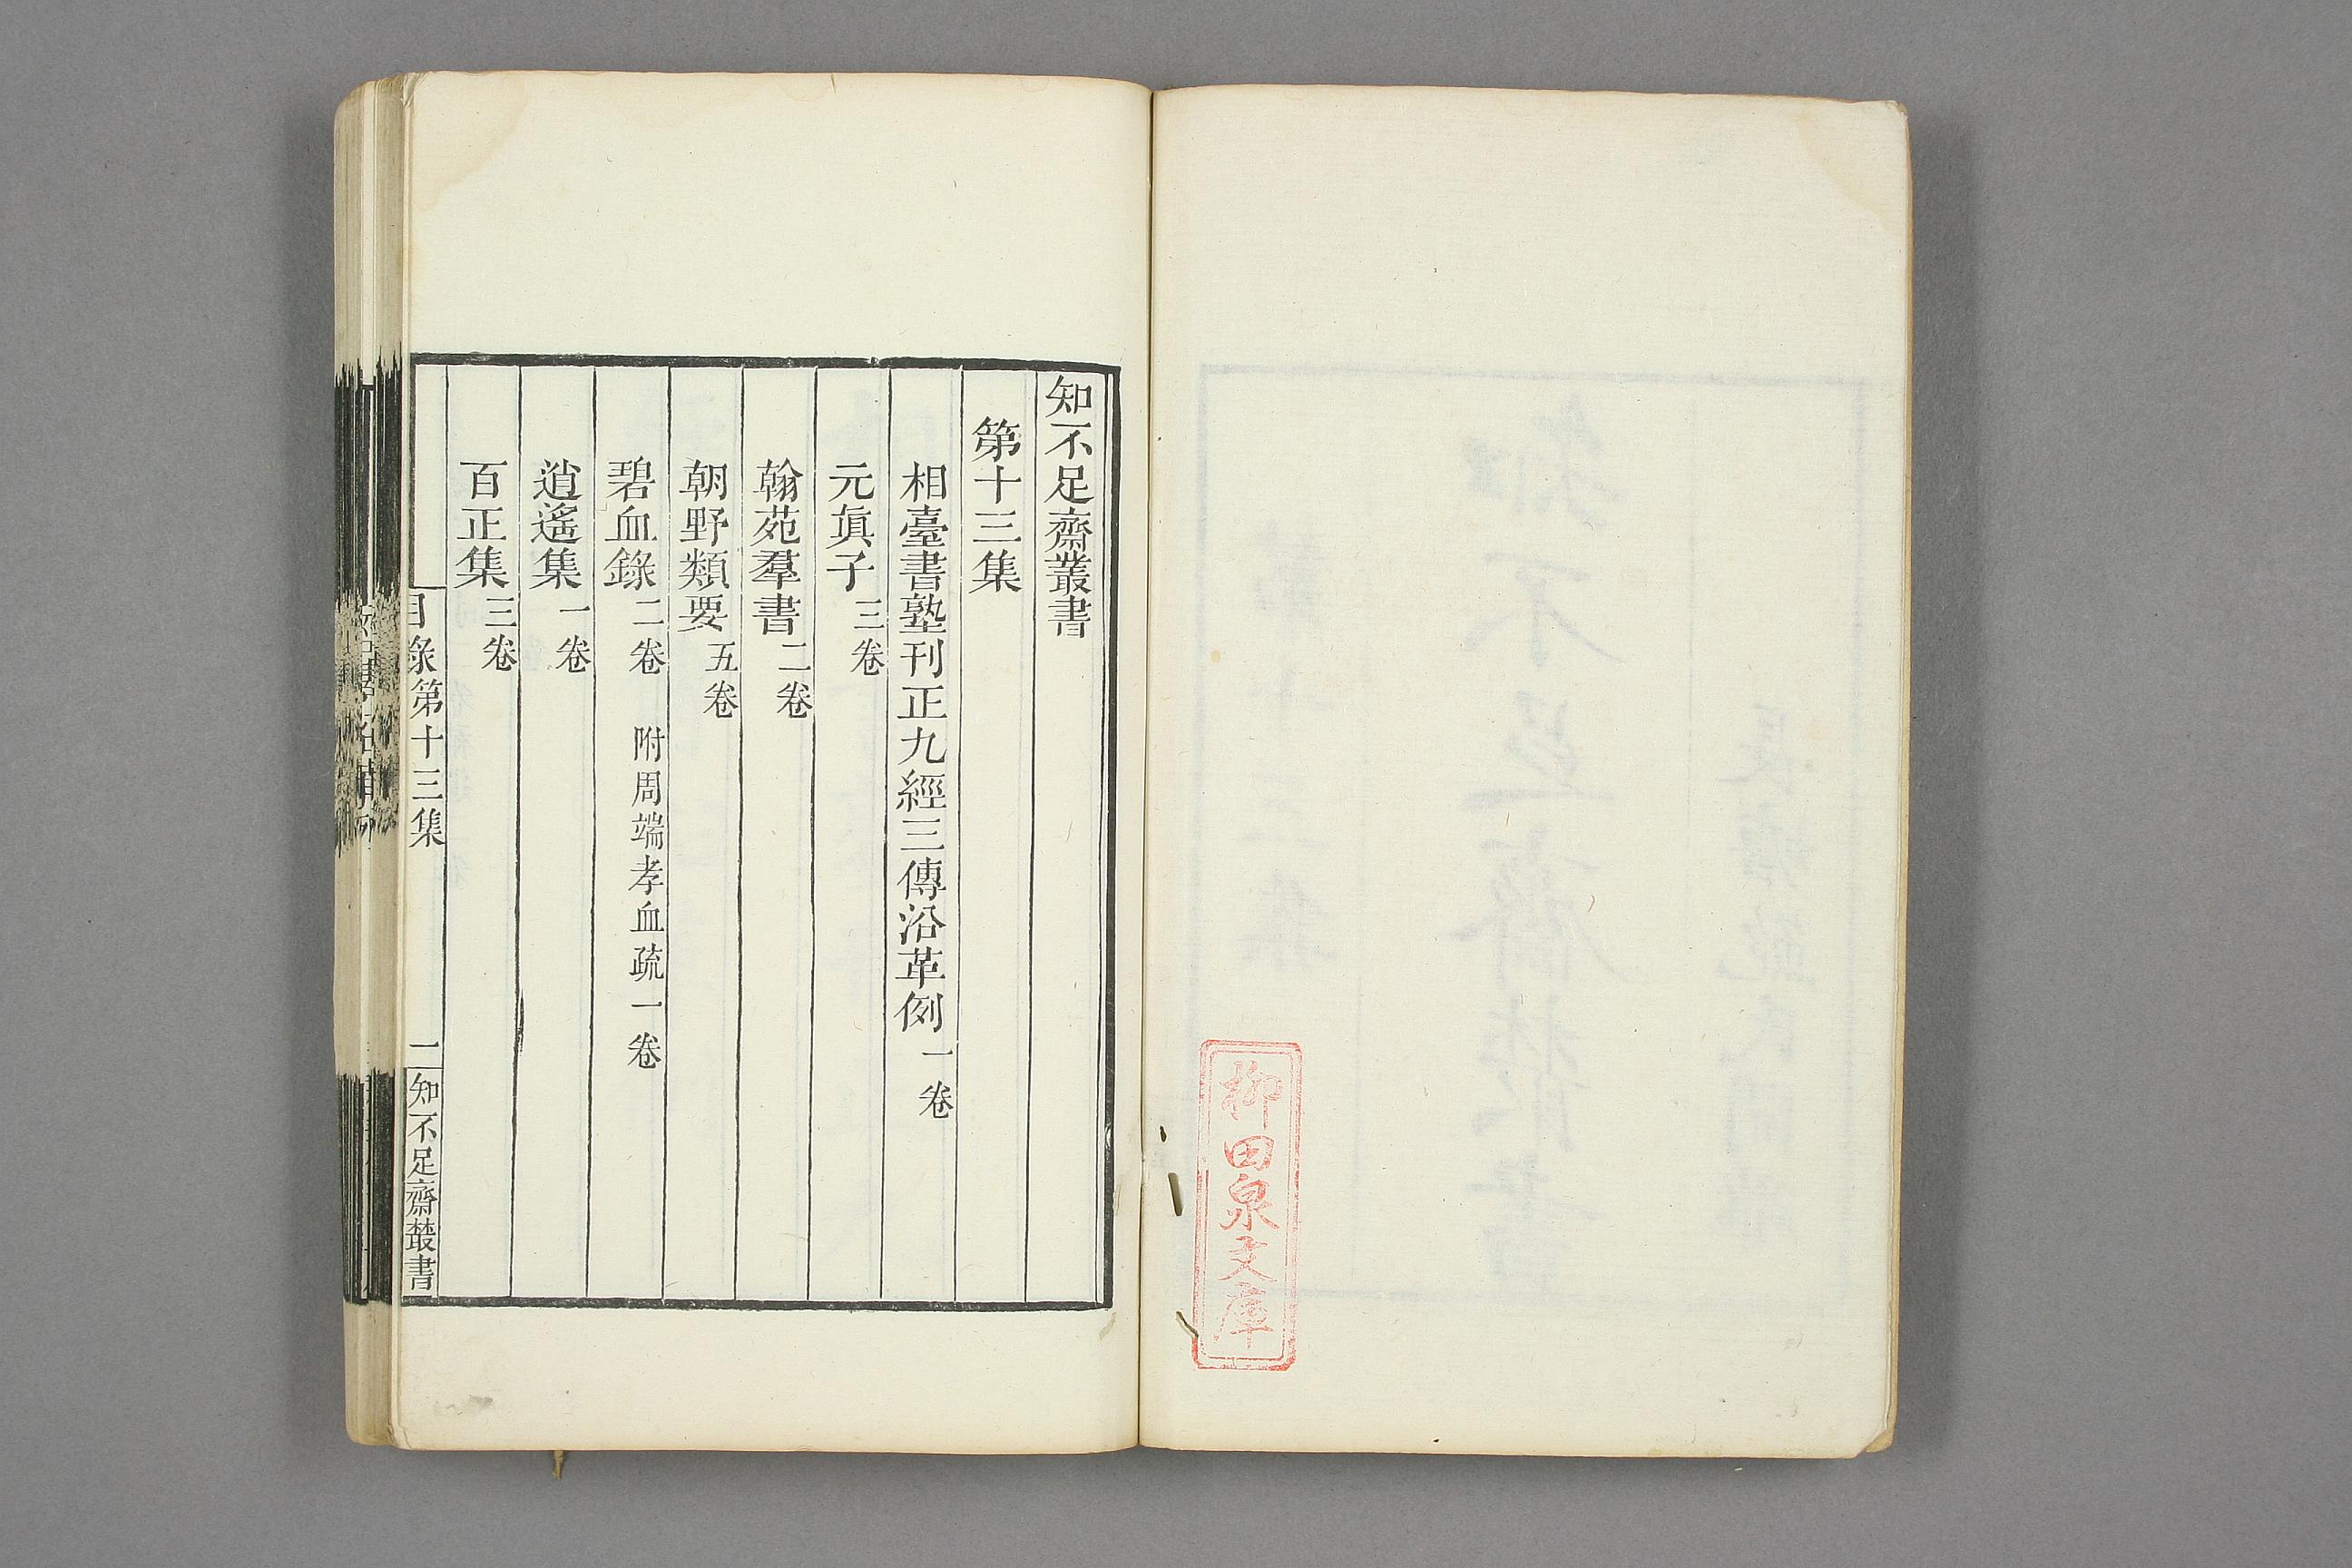 柳田泉文庫
知不足齋叢書
第十三集
相臺書塾刊正九經三傳沿革例 一卷
元眞子 三卷
翰苑羣書 二卷
朝野類要 五卷
碧血錄 二卷 附周端孝血疏一卷
逍遙集 一卷
百正集 三卷
目錄第十三集 一 知不足齋叢書